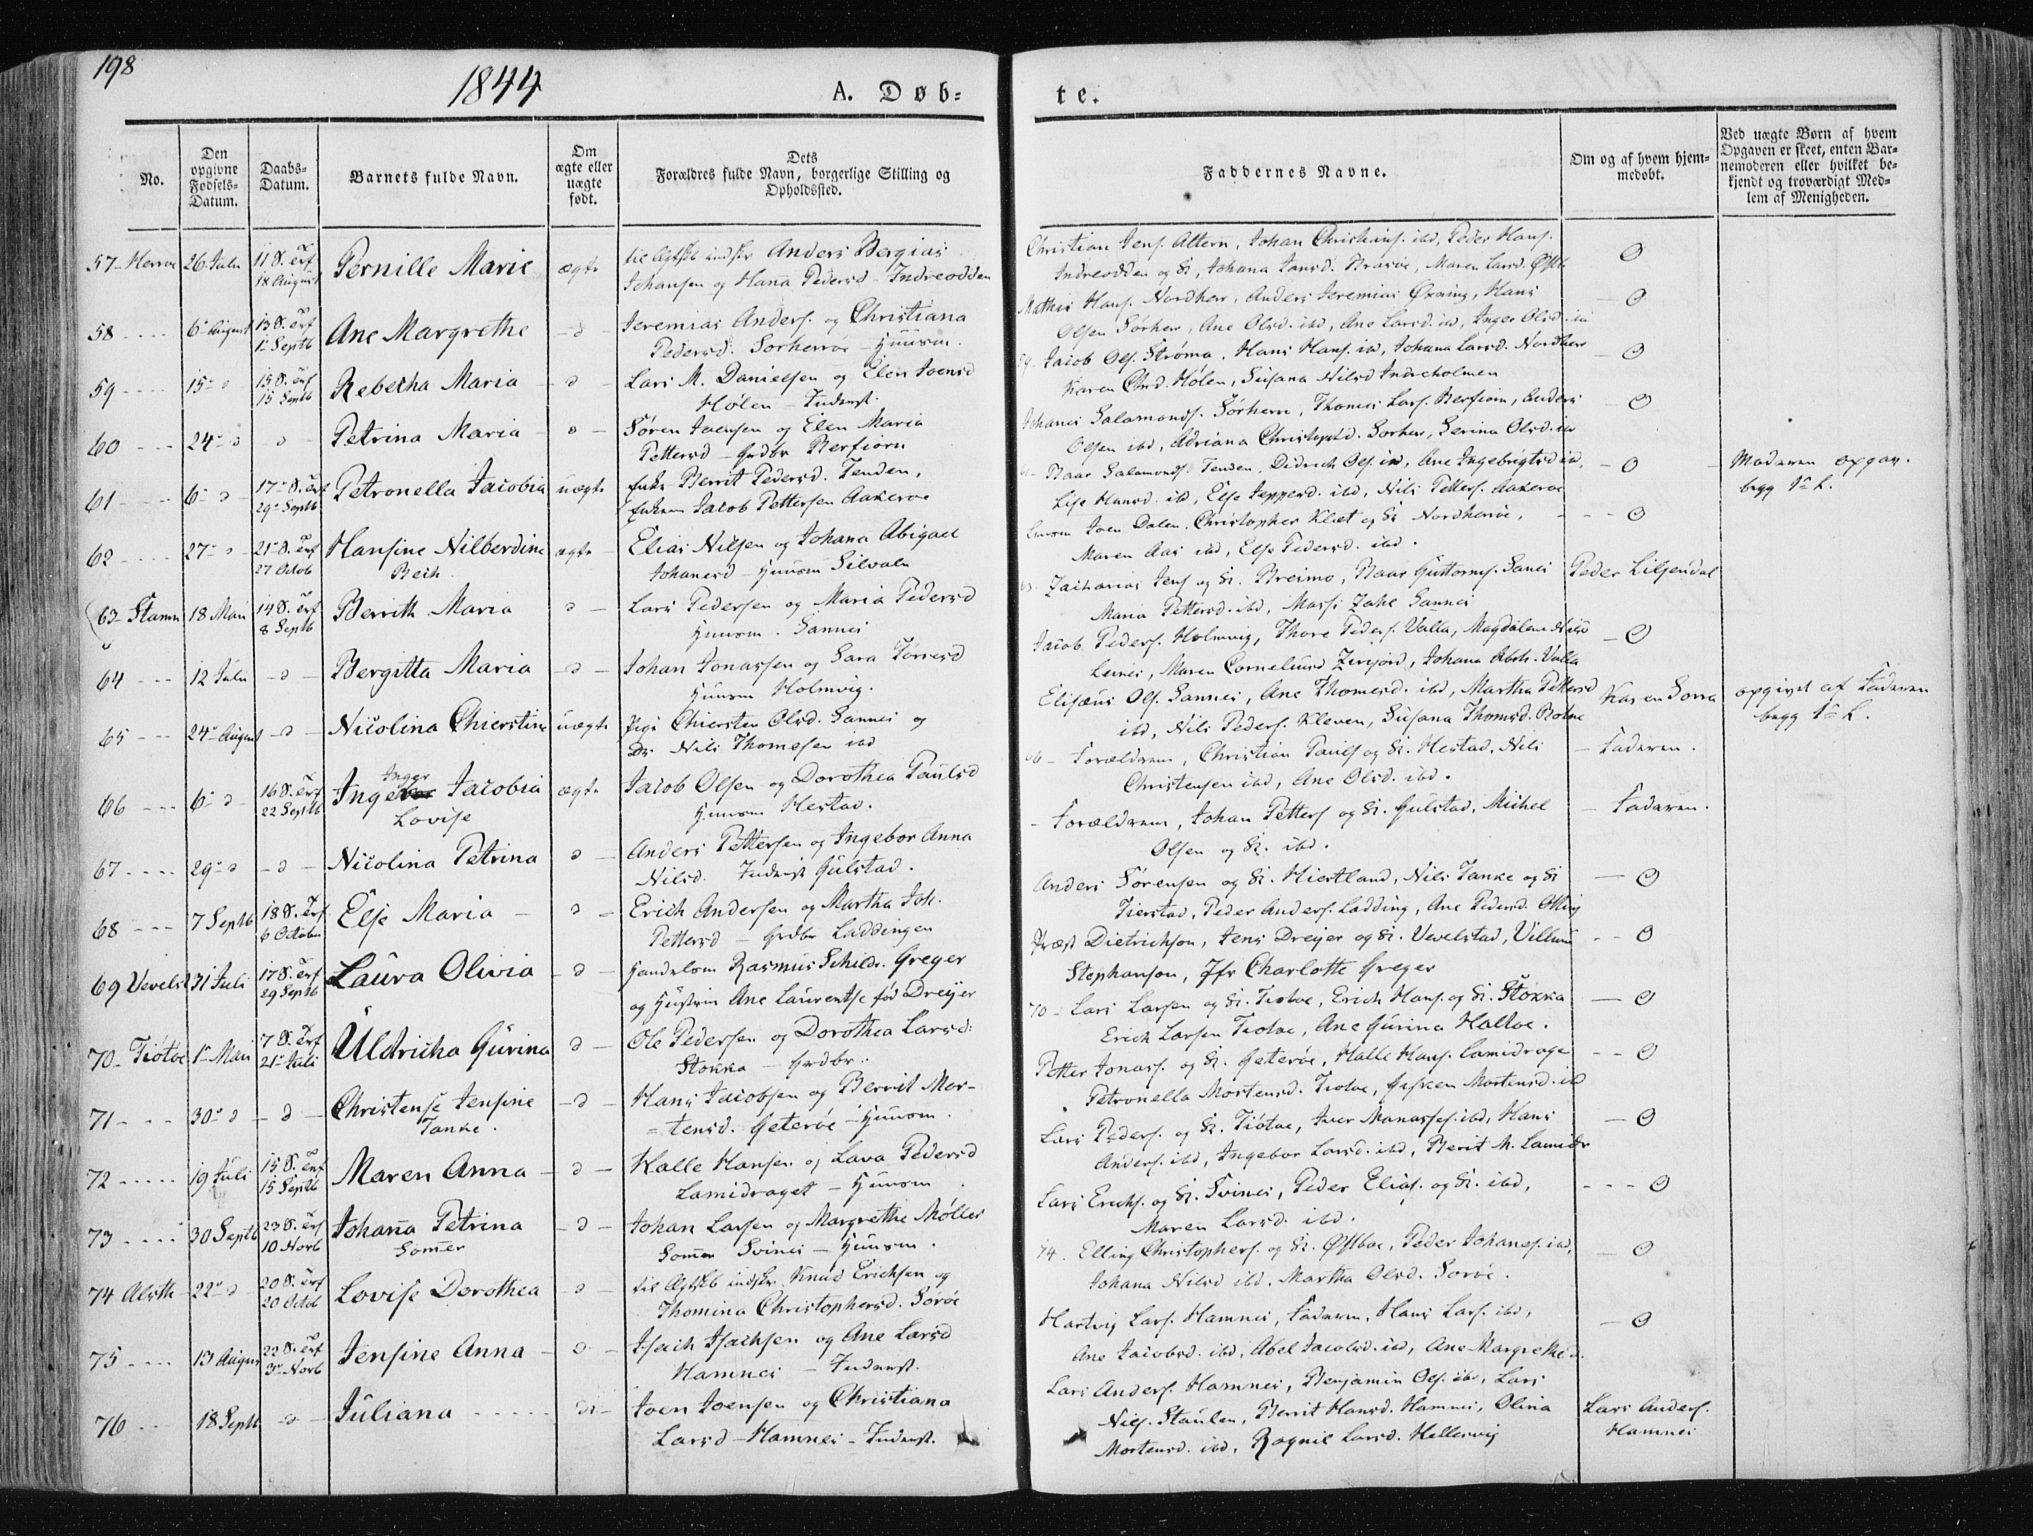 198
1844
A. Døb-
te.
No.
Den opgivne Fødsels-Datum.
Daabs-Datum.
Barnets fulde Navn.
Om ægte eller uægte født.
Dets Forældres fulde Navn, borgerlige Stilling og Opholdssted.
Faddernes Navne.
Om og af hvem hjem-medøbt.
Ved uægte Børn af hvem Opgaven er skeet, enten Bar-nemoderen eller hvilket be-kjendt og troværdigt Med-lem af Menigheden.
57 - Herrøe 26 Juli 11 S. Trf 18 August Pernille Marie ægte
Anders Bergias
Johansen og Hana Pedersd - Indreodden
Christian Jens. Altern, Johan Christians. ibd, Peder Hans.
Indreodden og K., Johana Jonsd. Brasøe, Maren Larsd. Østb
58 6 August 13 S. Trf 1 Septb Ane Margrethe d
Jeremias Anders. og Christiana
Pedersd. Sørherrøe - Huusm.
Mathis Hans. Nordherr, Anders Jeremias Øxning, Hans
Olsen Sørherr, Ane Olsd. ibd, Ane Larsd. ibd, Inger Olsd. ibd
59 15 d 15 S. Trf 15 Septb Rebecha Maria d
Lars M. Danielsen og Elen Joensd
Hølen - Inderst.
59. Jacob Ols. Strøma, Hans Hans. ibd, Johana Larsd. Nordherr
Karen Chrd. Hølen, Susana Nilsd Indreholmen
60 24 d d Petrina Maria d
Søren Joensen og Elen Maria
Pettersd - Grdbr Berfiorn
Johanes Salamons. Sørherr, Thomes Lars. Berfiorn, Anders
Olsen ibd, Adriana Christophd. Sørherr, Serina Olsd. ibd
61 6 d 17 S. Trf 29 Septb Petronella Jacobia uægte
Berrit Pedersd. Tenden,
Jacob Pettersen Aakerøe
Baar Salamons. Tenden, Didrich Ols. ibd, Ane Ingebrigtsd ibd,
Lise Hansd. ibd, Else Jeppesd. ibd, Nils Petters. Aakerøe
Moderen opgav.
begg 1ste L.
62 27 d 21 S. Trf 27 Octob Hansine Nilberdine ægte
Bech
Elias Nilsen og Johana Abigael
Johanesd - Huusm Silvaln
Joen Dalen, Christopher Klæt og K. Nordherrøe,
Maren Aas ibd, Else Pedersd. ibd.
63 - Stamn 18 Mai 14 S. Trf 8 Septb Berrith Maria d
Lars Pedersen og Maria Pedersd
Huusm. Sannes
63. Zacharias Jens og K. Breimo, Baar Guttorms. Sannes
Maria Pettersd. ibd, Massi Zake Sannes
Peder Liljendal
64 12 Juli d Bergitta Maria d
Johan Jonassen og Sara Torresd
Huusm Holmvig.
Jacob Peders. Holmvig, Thore Peders. Valla, Magdalene Nilsd
Leines, Maren Corneliusd , Johana Abrh. Valla
65 24 August d Nicolina Chierstine uægte
Pige Chiersten Olsd. Sannes og
Dr. Nils Thomesen ibd
Elisæus Ols. Sannes, Ane Thomesd. ibd, Martha Pettersd
ibd, Nils Peders. Kleven, Susana Thomsd. Botne
Karen Sorra
opgivet af Faderen
begg 1ste L.
66 6 d 16 S. Trf 22 Septb Inger Jacobia ægte
Lovise
Jacob Olsen og Dorothea Paulsd
Huusm Hestad.
66 - Forældrene, Christian Pauls og K. Hestad, Nils
Christensen ibd, Ane Olsd. ibd.
Faderen.
67 29 d d Nicolina Petrina d
Anders Pettersen og Ingebor Anna
Nilsd. Inderst Gulstad.
Forældrene, Johan Petters og K. Gulstad, Michel
Olsen og K. ibd.
Faderen.
68 7 Septb 18 S. Trf 6 October Else Maria d
Erich Andersen og Martha Joh.
Pettersd - Grdbr Laddingen
Anders Sørensen og K. Hiertland, Nils Tanke og K
Tierstad, Peder Anders. Ladding, Ane Pedersd. Olling
69 Vevelst 31 Juli 17 S. Trf 29 Septb Laura Olivia d
Handelsm Rasmus Schildr. Greger
og Hustru Ane Laurentse fød Dreyer
Præst Dietrichson, Jens Dreyer og K. Vevelstad, Villum
Stephanson, Jfr Charlotte Greger
70 - Tiøtøe 1 Mai 7 S. Trf 21 Juli Uldricha Gurina d
Ole Pedersen og Dorothea Larsd:
Stokka - Grdbr.
70 - Lars Larsen og K. Tiøtøe, Erich Hans. og K. Stokka
Erich Larsen Tiøtøe, Ane Gurina Haltøe.
71 30 d d Christense Jensine d
Tanke.
Hans Jacobsen og Berrit Mor-
tensd. Geterøe - Huusm.
Petter Jonass. og K. Geterøe, Halle Hans. Lamidraget
Petronella Mortensd. Tiøtøe, Gisken Mortensd. ibd
72 19 Juli 15 S. Trf 15 Septb Maren Anna d
Halle Hansen og Lava Pedersd
Lamidraget - Huusm
Lars Peders. og K. Tiøtøe, Iver Manasses. ibd, Hans
Anders. ibd, Ingebor Larsd. ibd, Berit M. Lamidr
73 30 Septb 23 S. Trf 10 Novb Johana Petrina d
Somer
Johan Larsen og Margrethe Møller
Somer Svines - Huusm.
Lars Erichs. og K. Svines, Peder Elias. og K. ibd,
Maren Larsd. ibd.
74 Alsth 22 d 20 S. Trf 20 Octob Lovise Dorothea d
Knud Erichsen og
Thomina Christophersd. Sørøe
74. Elling Christophers. og K. Østbøe, Peder Johanes. ibd,
Johana Nilsd ibd. Martha Olsd. Sorøe.
75 13 August 22 S. Trf 3 Novb Jensine Anna d
Isach Isachsen og Ane Larsd
Hamnes - Inderst.
Hartvig Lars. Hamnes, Faderen, Hans Lars. ibd,
Ane Jacobsd. ibd, Abel Jacobsd. ibd, Ane Margrethe d.
76 18 Septb d Juliana d
Joen Joensen og Christiana
Larsd - Hamnes - Inderst.
Lars Anders. Hamnes, Benjamin Ols. ibd, Lars
Nils. Staulen, Berrit Hansd. Hamnes, Olina
Mortensd. ibd, Ragnil Larsd. Hellesvig
Lars Anders.
Hamnes